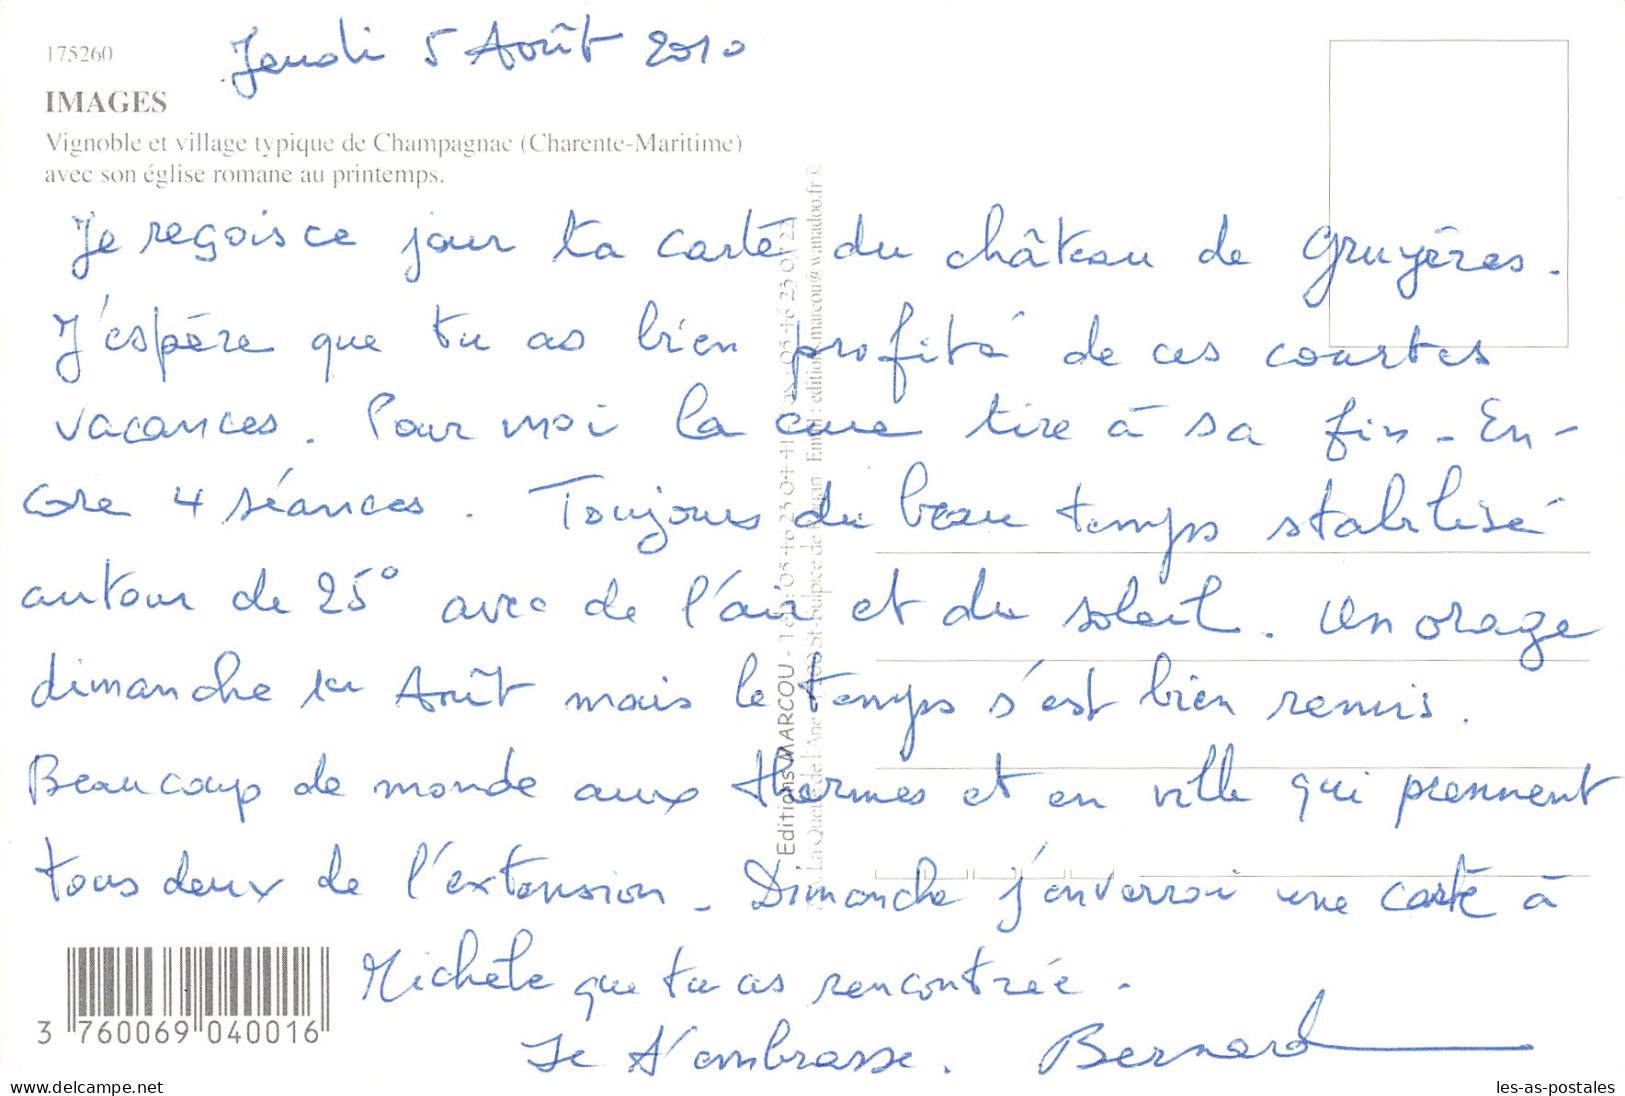 175260
Jeudi 5 Août 2010
IMAGES
Vignoble et village typique de Champagnac (Charente-Maritime)
avec son église romane au printemps.
Je reçois ce jour ta carte du château de Gruyères.
J'espère que tu as bien profité de ces courtes
vacances. Pour moi la cure tire à sa fin - En-
core 4 séances. Toujours du beau temps stabilisé
autour de 25° avec de l'air et du soleil. Un orage
dimanche 1er Août mais le temps s'est bien remis.
Beaucoup de monde aux thermes et en ville qui prennent
tous deux de l'extension - Dimanche j'enverrai une carte à
Michèle que tu as rencontrée.
Je t'embrasse. Bernard
Editions MARCOU
La Queue de l'Ane St-Sulpice de Royan Email : editions.marcou@wanadoo.fr ©
3 760069 040016
les-as-postales